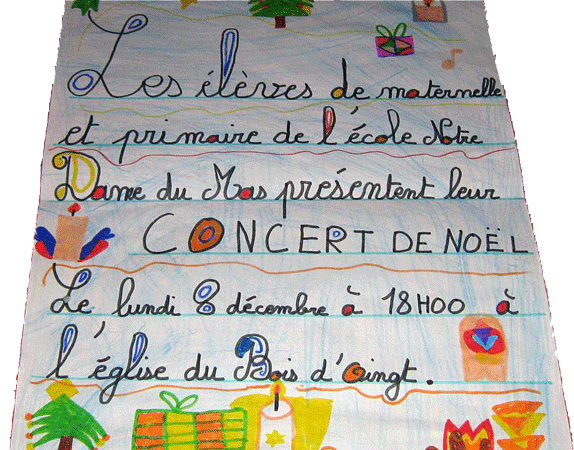 Les élèves de maternelle
et primaire de l'école Notre
Dame du Mas présentent leur
CONCERT DE NOËL
Le lundi 8 décembre à 18H00 à
l'église du Bois d'Oingt.